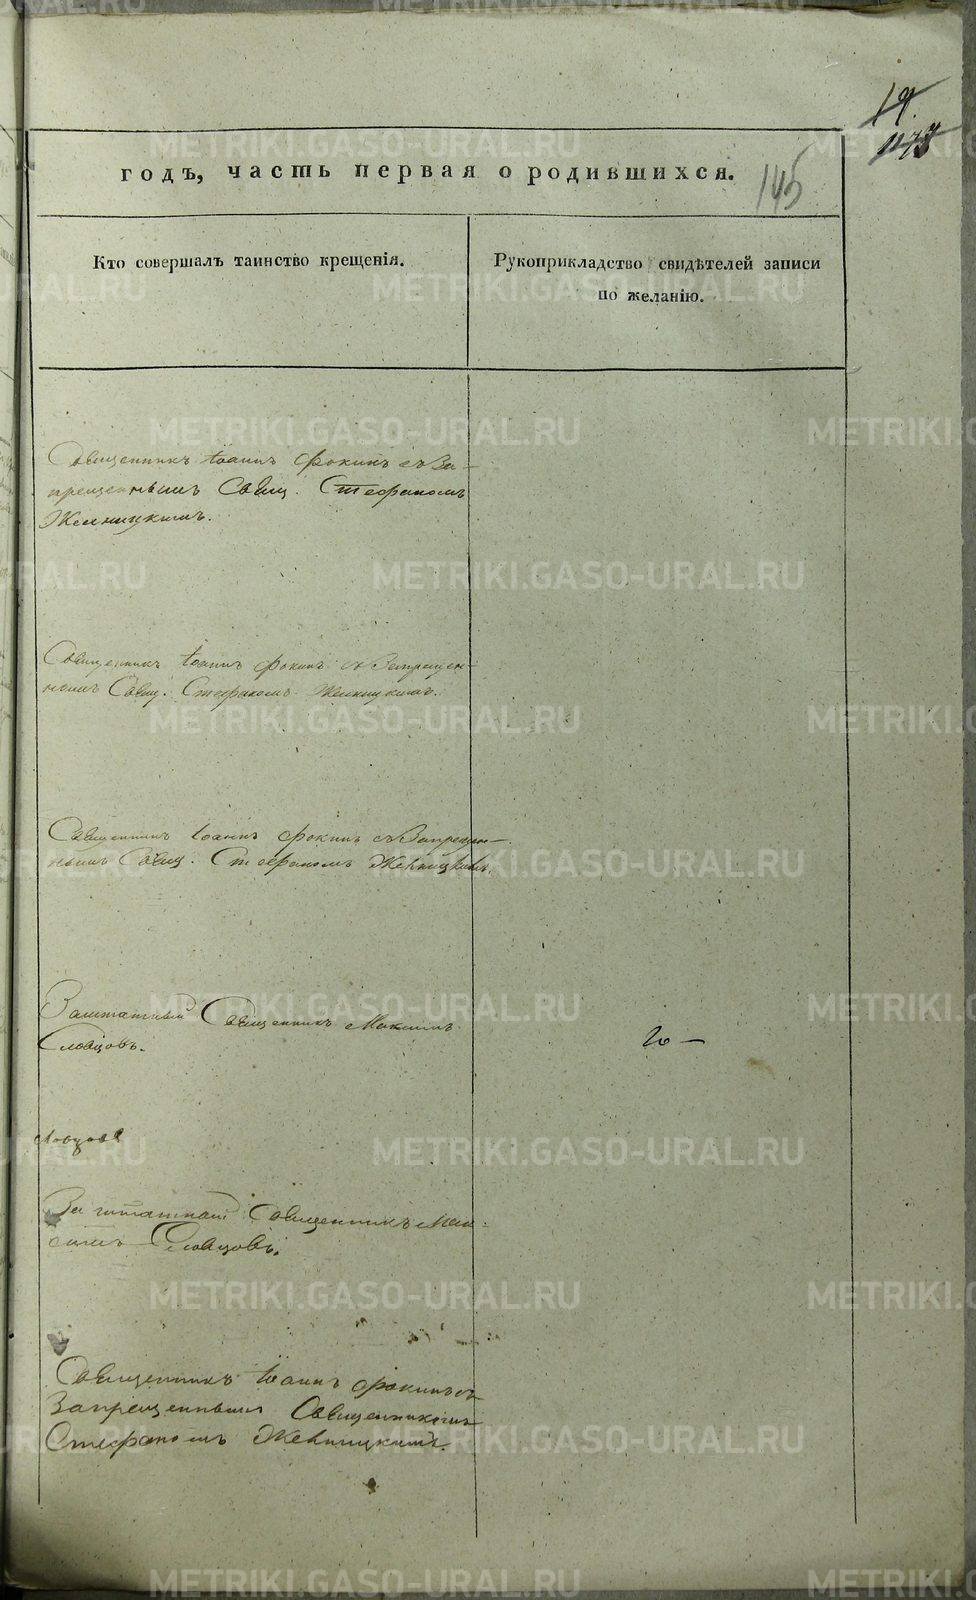 19.
1173
145
годъ, часть первая о родившихся.
Кто совершалъ таинство крещенія.
Рукоприкладство свидѣтелей записи
по желанію.
Священникъ Іоаннъ Фокинъ съ За-
прещеннымъ Свящ. Стефаномъ
Желницкимъ.
Священникъ Іоаннъ Фокинъ съ Запрещен-
нымъ Свящ. Стефаномъ Желницкимъ.
Священникъ Іоаннъ Фокинъ съ Запрещен-
нымъ Свящ. Стефаномъ Желницкимъ.
Заштатный Священникъ Максимъ
Словцовъ.
Словцовъ
Заштатный Священникъ Мак-
симъ Словцовъ.
Священникъ Іоаннъ Фокинъ съ
Запрещеннымъ Священникомъ
Стефаномъ Желницкимъ.
METRIKI.GASO-URAL.RU